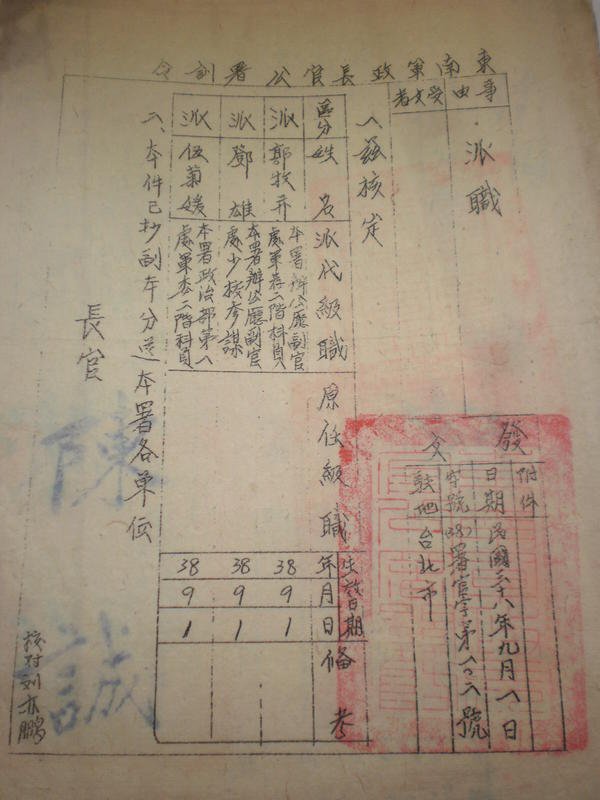 東南軍政長官公署訓令
事由
派職
受文者
發文
附件
日期
民國三十八年九月八日
字號
(38)署官字第一〇二號
駐地
台北市
一、茲核定
區分
姓名
派代級職
原任級職
生效日期
年月日
備考
派
郭牧
本署辦公廳副官處軍荐二階科員
38
9
1
派
鄧雄
本署辦公廳副官處少校參謀
38
9
1
派
伍菊媛
本署政治部第一處軍委二階科員
38
9
1
二、本件已抄副本分送本署各單位
長官
陳誠
核对刘亦鵬